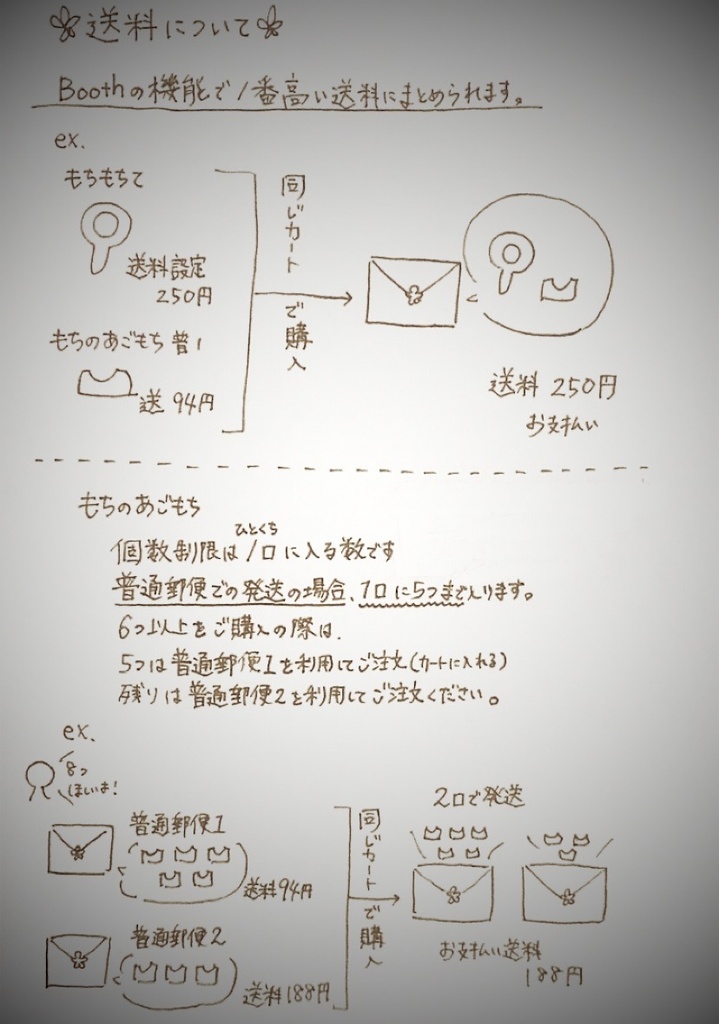 送料について
Boothの機能で1番高い送料にまとめられます。
ex.
もちもちて
送料設定
250円
もちのあごもち 普1
送 94円
同じカートで購入
送料 250円
お支払い
もちのあごもち
ひとくち
個数制限は1口に入る数です
普通郵便での発送の場合、1口に5つまで入ります。
6つ以上をご購入の際は、
5つは普通郵便1を利用してご注文(カートに入れる)
残りは普通郵便2を利用してご注文ください。
ex.
8つ
ほしいよ!
普通郵便1
送料94円
普通郵便2
送料188円
同じカートで購入
2口で発送
お支払い送料
188円